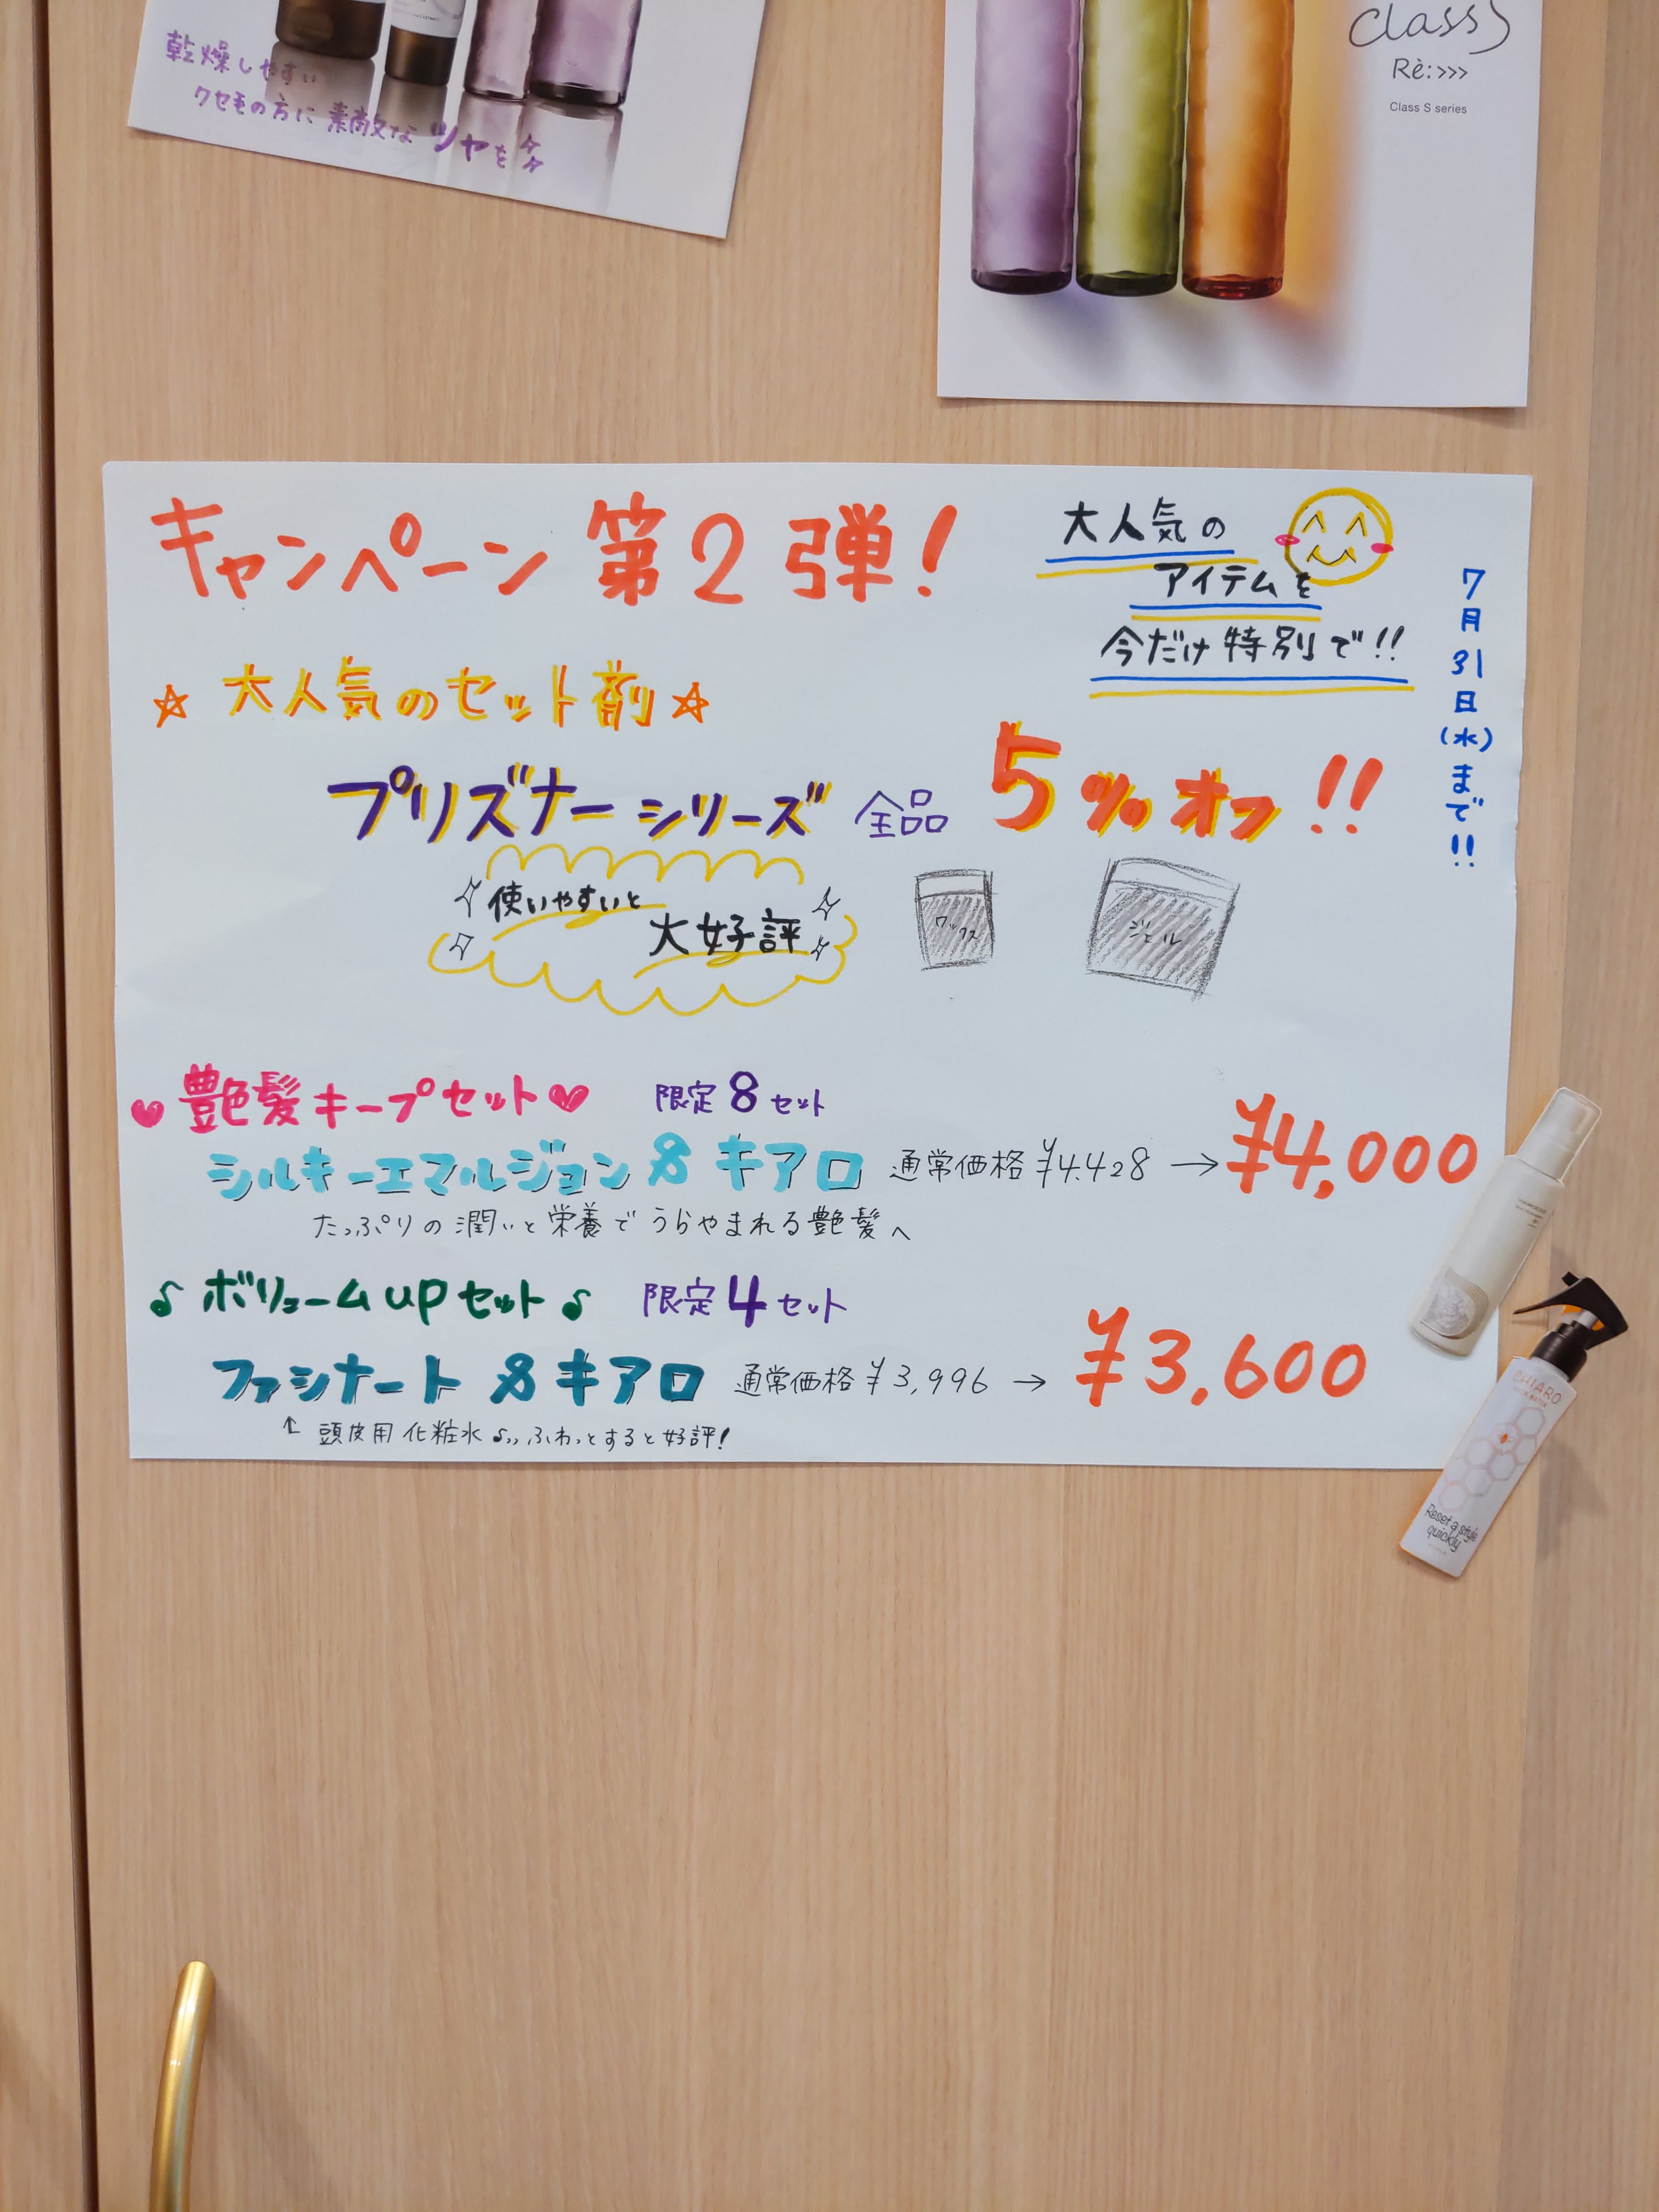 乾燥しやすい
クセ毛の方に素敵なツヤを
Class S
Rè:>>>
Class S series
キャンペーン第2弾!
大人気の
アイテムを
今だけ特別で!!
7月31日(水)まで!!
☆大人気のセット剤☆
プリズナーシリーズ 全品 5%オフ!!
使いやすいと
大好評
ワックス
ジェル
♥艶髪キープセット♥ 限定8セット
シルキーエマルジョン&キアロ 通常価格¥4,428→¥4,000
たっぷりの潤いと栄養でうらやまれる艶髪へ
♪ボリュームupセット♪ 限定4セット
ファシナート&キアロ 通常価格¥3,996→¥3,600
↑頭皮用化粧水♪ふわっとすると好評!
CHIARO
Reset a style
quickly